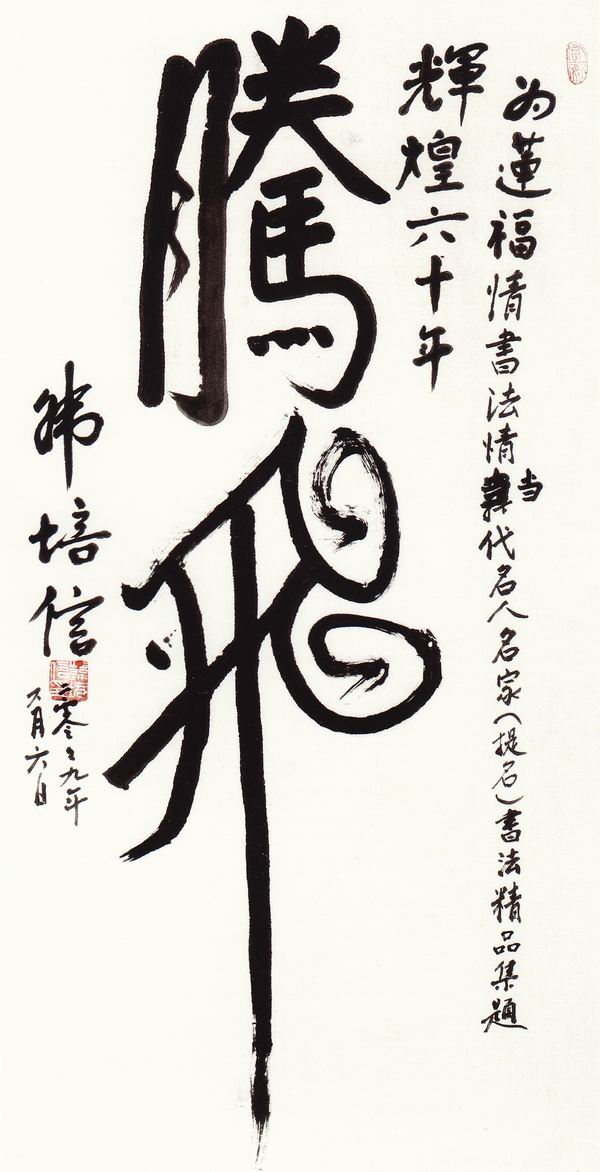 为蓮福情書法情当代名人名家（提名）書法精品集題
輝煌六十年
騰飛
韩培信
二零々九年
月六日